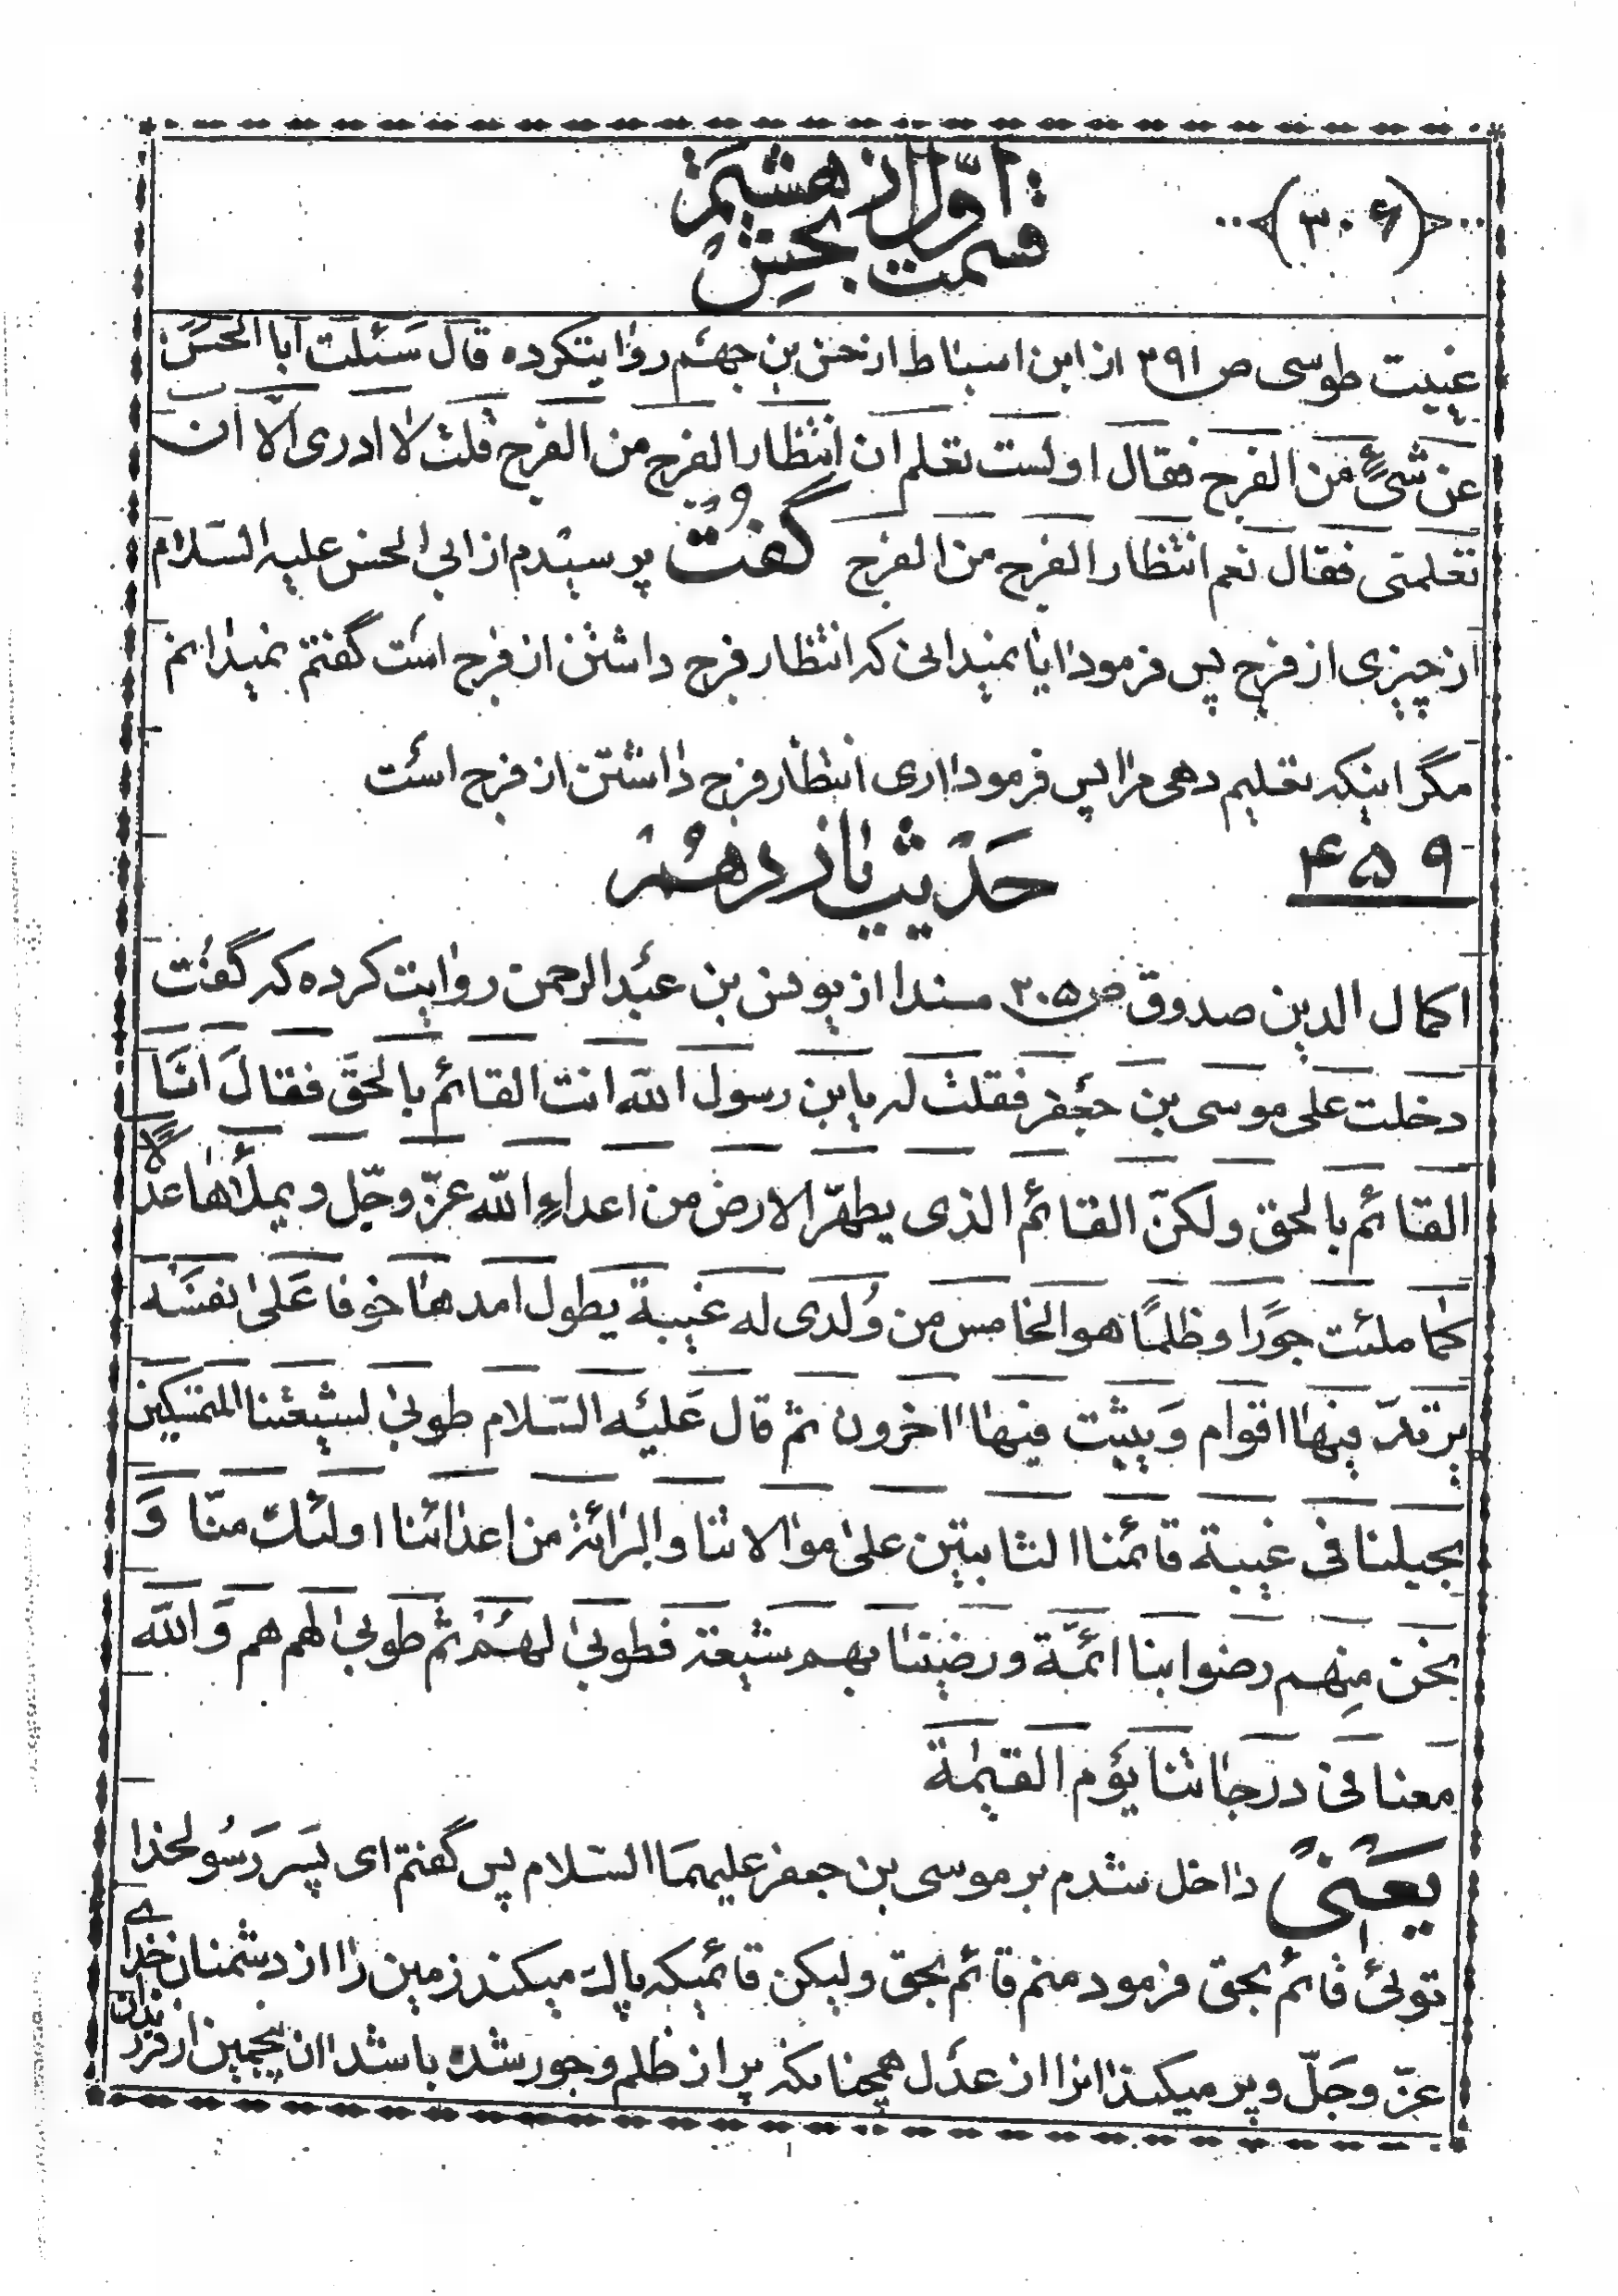 (۳۰۶)
قسمت اوّل از بخش هشتم
غیبت طوسی ص ۲۹۱ از ابن اسباط از حسن بن جهم روایتکرده قال سَئلت اَبا الحَسَن
عن شیءٍ من الفرج فقال اولست تعلم ان انتظار الفرج من الفرج قلت لا ادری الّا ان
تعلمنی فقال نعم انتظار الفرج من الفرج گفت پرسیدم از ابی الحسن علیه السّلام
از چیزی از فرج پس فرمود ایا نمیدانی که انتظار فرج داشتن از فرج است گفتم نمیدانم
مگر اینکه تعلیم دهی مرا پس فرمود اری انتظار فرج داشتن از فرج است
۴۵۹
حَدیث یازدهم
اکمال الدین صدوق ص ۲۰۵ مسندا از یونس بن عبد الرحمن روایت کرده که گفت
دخلت علی موسی بن جعفر فقلت له یابن رسول اللّه انت القائم بالحقّ فقالَ انَا
القائم بالحق ولکنّ القائم الذی یطهّر الارض من اعداءِ اللّه عزّ وجّل و یملأها عدلًا
کما ملئت جَورًا و ظلمًا هو الخامس من وُلدی له غیبة یطول امدها خوفا عَلیٰ نفسَه
یرتدّ فیها اقوام وَیثبت فیها اخرون ثم قال عَلیه السّلام طوبیٰ لشیعتنا المتمسکین
بحبلنا فی غیبة قائمنا الثابتین علیٰ موالاتنا والبرائة من اعدائنا اولئک منّا وَ
نحن مِنهم رضوا بنا ائمّة ورضینا بهم شیعة فطوبیٰ لهُم ثم طوبیٰ لهم هم وَاللّه
معنا فی دَرَجاتنا یَوم القیٰمة
یَعنی داخل شدم بر موسی بن جعفر علیهمَا السّلام پس گفتم ای پَسر رَسُولخدا
توئی قائم بحق فرمود منم قائم بحق ولیکن قائمیکه پاک میکند زمین را از دشمنان خدای
عزّ وجَلّ وپر میکند انرا از عدل همچنانکه پر از ظلم وجور شده باشد ان پنجمین از فرزندان